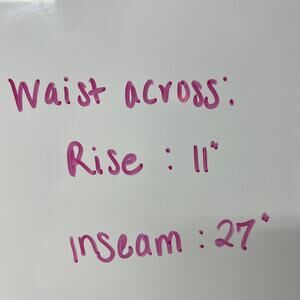 Waist across:
Rise : 11"
inseam : 27"